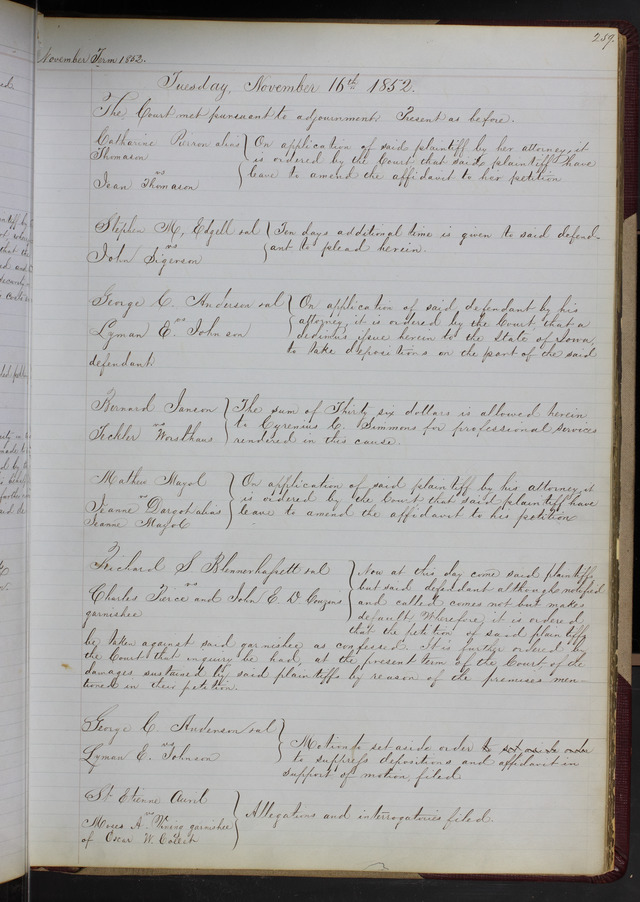 259.
November Term 1852.
Tuesday, November 16th 1852.
The Court met pursuant to adjournment Present as before.
Catharine Pierron alias
Thomason
vs
Jean Thomason
On application of said plaintiff by her attorney, it
is ordered by the Court, that said plaintiff have
leave to amend the affidavit to her petition
Stephen M, Edgell et al
vs
John Sigerson
Ten days additional time is given to said defend-
ant to plead herein.
George C. Anderson et al
vs
Lyman E. Johnson
defendant
On application of said defendant by his
attorney, it is ordered by the Court, that a
dedimus issue herein to the State of Iowa,
to take depositions on the part of the said
Bernard Janson
vs
Teckler Worsthaus
The sum of Thirty six dollars is allowed herein
to Cyrenius C. Simmons for professional services
rendered in this cause.
Mathew Mayol
vs
Jeanne Dargot alias
Jeanne Mayol
On application of said plaintiff by his attorney, it
is ordered by the Court that said plaintiff have
leave to amend the affidavit to his petition
Richard S Blennerhassett et al
vs
Charles Pierce and John E. D Couzins
garnishee
Now at this day come said plaintiffs
but said defendant although notified
and called comes not but makes
default, Wherefore, it is ordered
that the petition of said plaintiffs
be taken against said garnishee as confessed. It is further ordered by
the Court that inquiry be had, at the present term of the Court of de
damages sustained by said plaintiffs by reason of the premises men-
tioned in their petition.
George C. Anderson et al
vs
Lyman E. Johnson
Motion to set aside order
to suppress depositions and affidavit in
support of motion filed
St Etienne Auvil
vs
Moses A. garnishee
of Oscar W. Collet
Allegations and interrogatories filed.